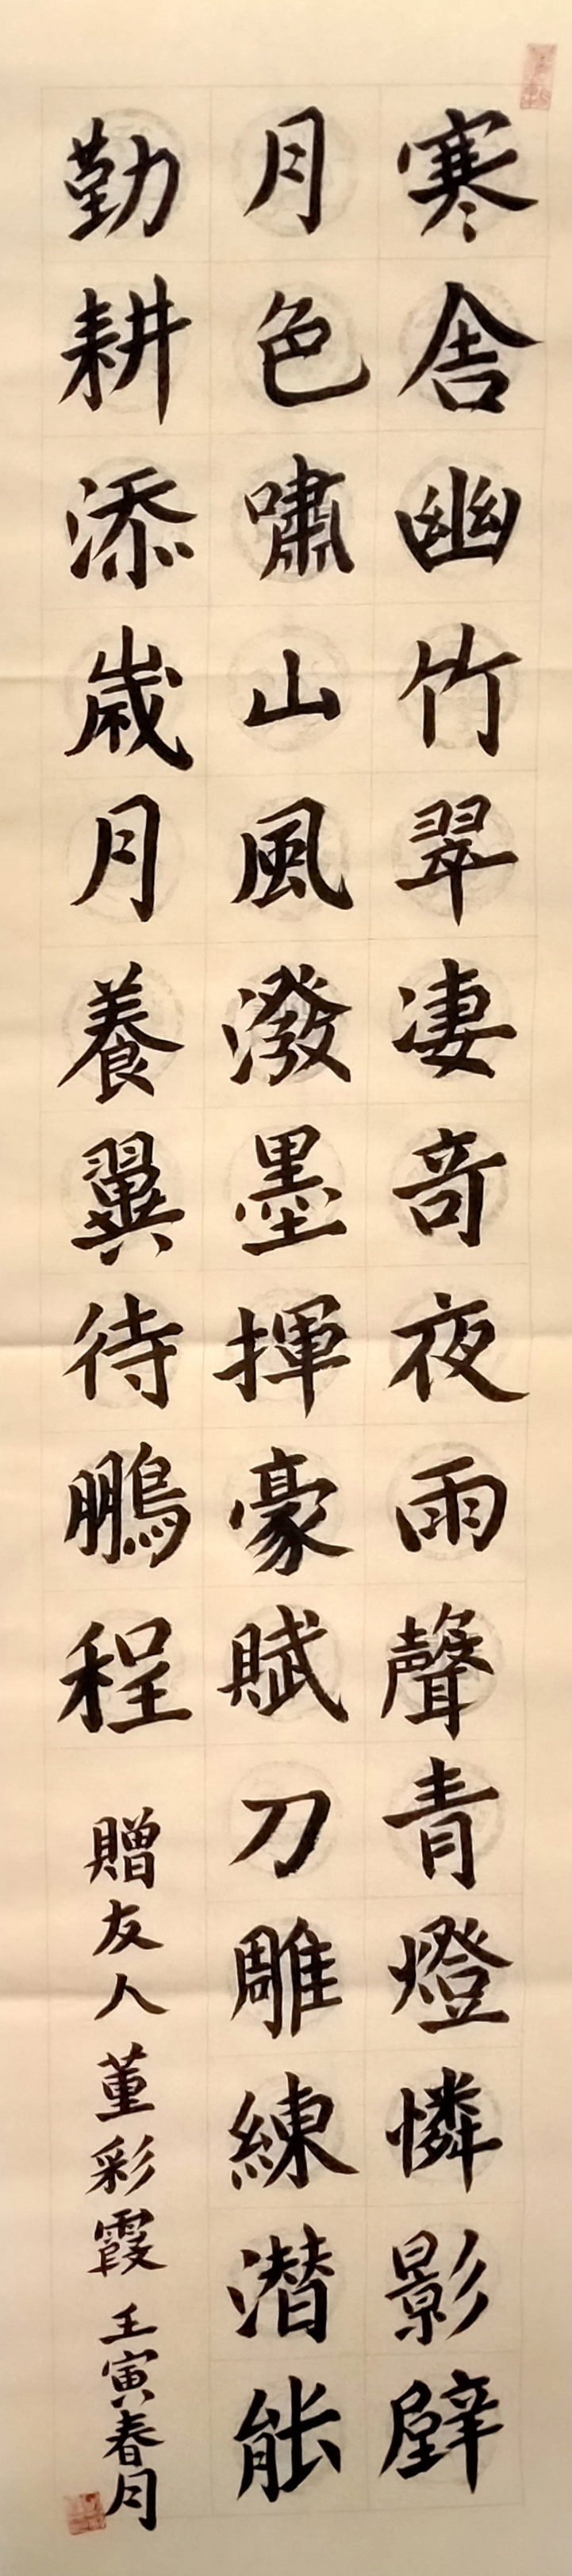 寒舍幽竹翠凄奇夜雨聲青燈憐影壁
月色嘯山風潑墨揮豪賦刀雕練潛能
勤耕添歲月養翼待鵬程 贈友人董彩霞 壬寅春月